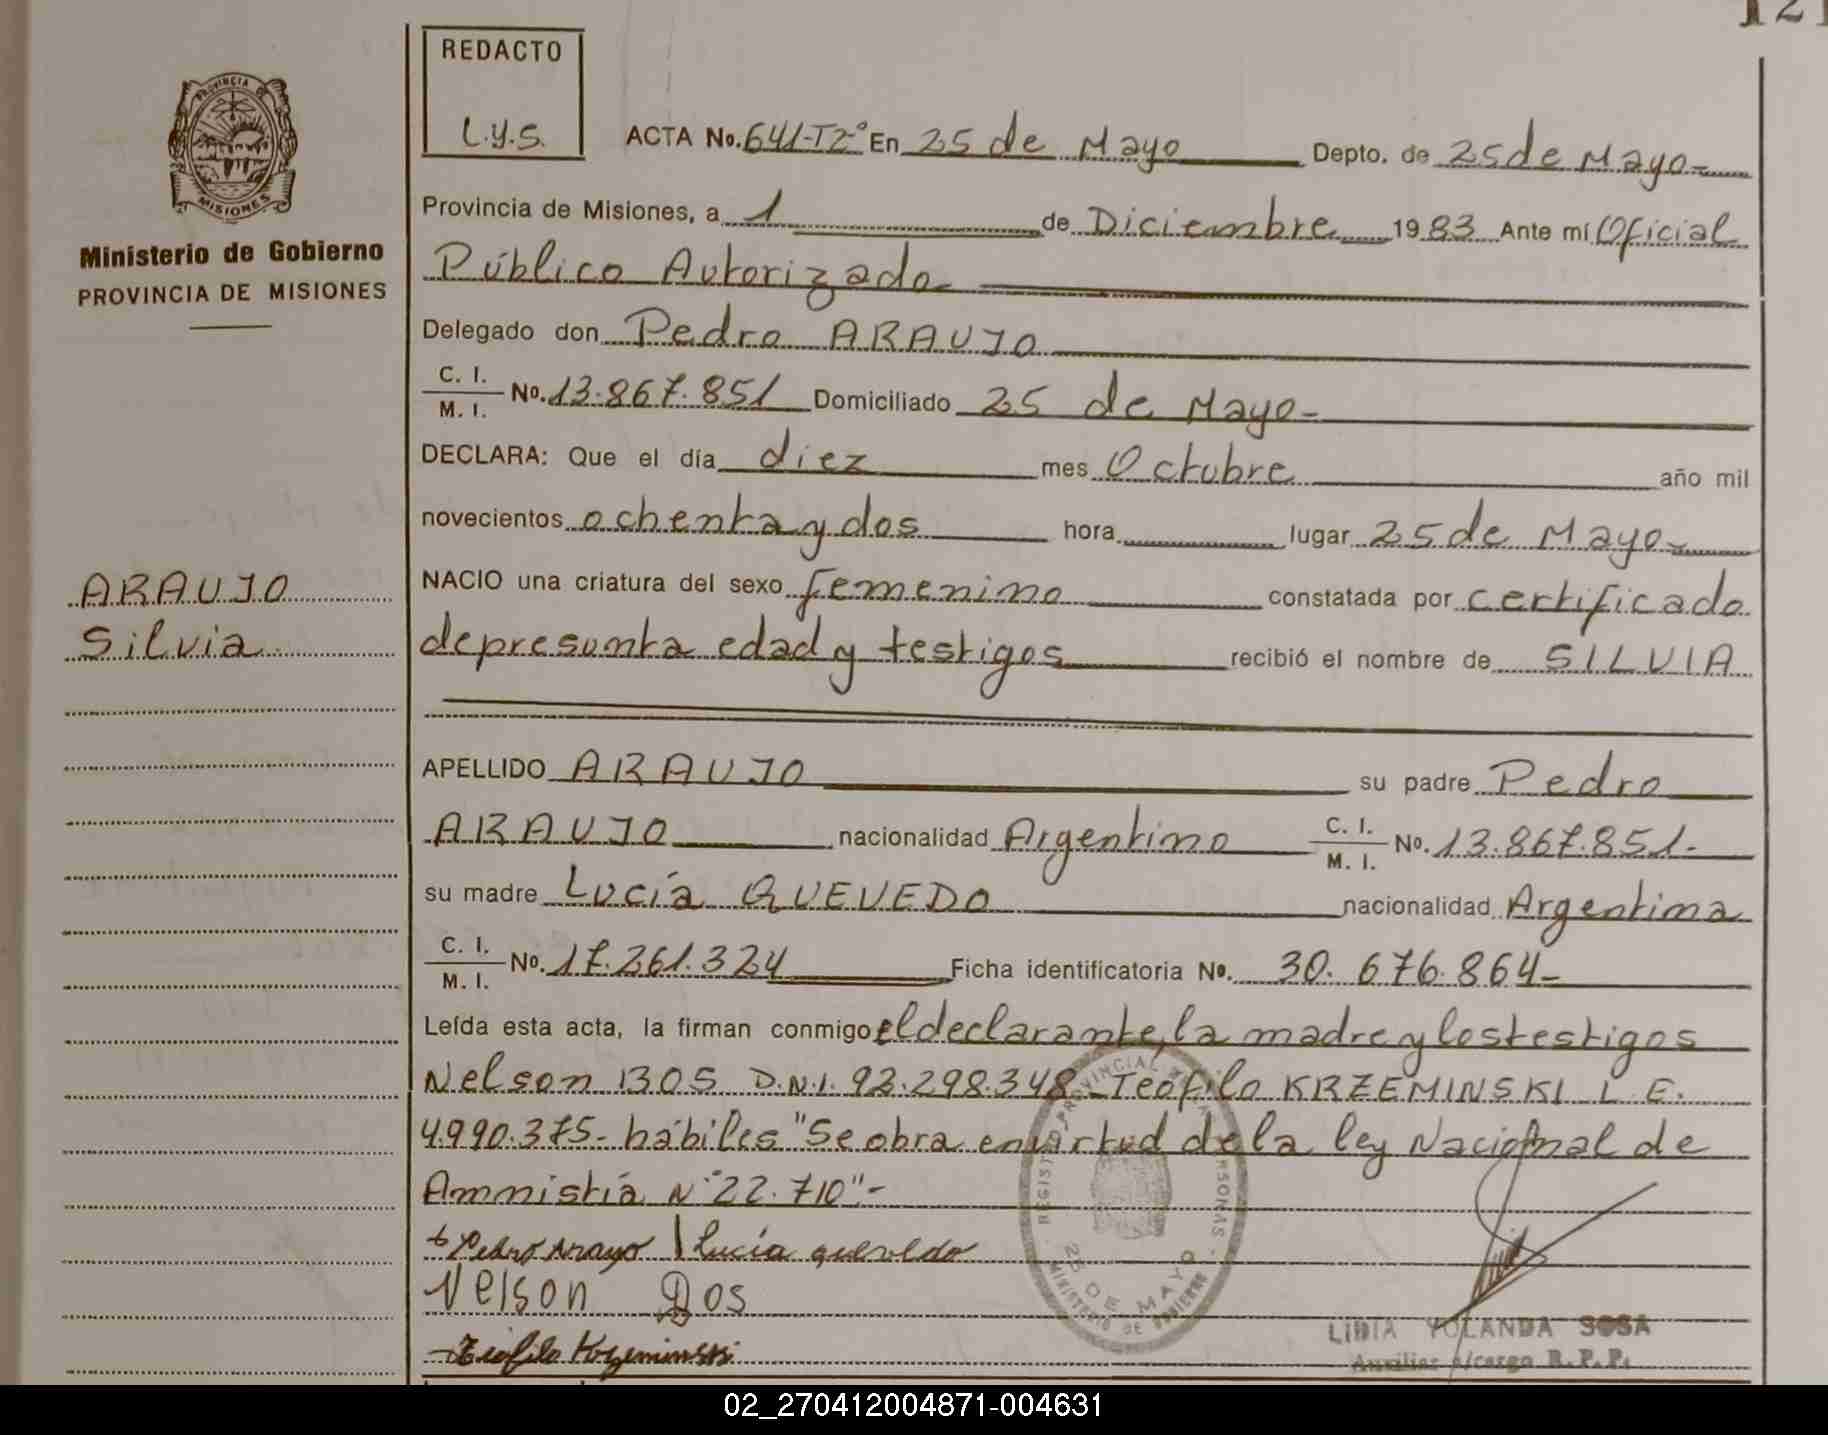 121
REDACTO
L.Y.S.
PROVINCIA DE
MISIONES
Ministerio de Gobierno
PROVINCIA DE MISIONES
ACTA No. 641-T2º En 25 de Mayo Depto. de 25 de Mayo-
Provincia de Misiones, a 1 de Diciembre 1983 Ante mí Oficial
Público Autorizado
Delegado don Pedro ARAUJO
C. I.
M. I. No. 13.867.851 Domiciliado 25 de Mayo-
DECLARA: Que el día diez mes Octubre año mil
novecientos ochenta y dos hora lugar 25 de Mayo-
ARAUJO
Silvia
NACIO una criatura del sexo femenino constatada por certificado
de presunta edad y testigos recibió el nombre de SILVIA
APELLIDO ARAUJO su padre Pedro
ARAUJO nacionalidad Argentino C. I. M. I. No. 13.867.851-
su madre Lucía QUEVEDO nacionalidad Argentina
C. I.
M. I. No. 17.261.324 Ficha identificatoria No. 30.676.864-
Leída esta acta, la firman conmigo el declarante, la madre y los testigos
Nelson BOS D.N.I. 92.298.348 Teófilo KRZEMINSKI L.E.
4.990.375- hábiles "Se obra en virtud de la ley Nacional de
Amnistía Nº 22.710"-
Pedro Arauo Lucía quevedo
Nelson Bos
Teofilo Krzeminski
REGISTRO PROVINCIAL DE LAS PERSONAS
25 DE MAYO
MINISTERIO DE GOBIERNO
LIDIA YOLANDA SOSA
Auxiliar a/cargo R.P.P.
02_270412004871-004631